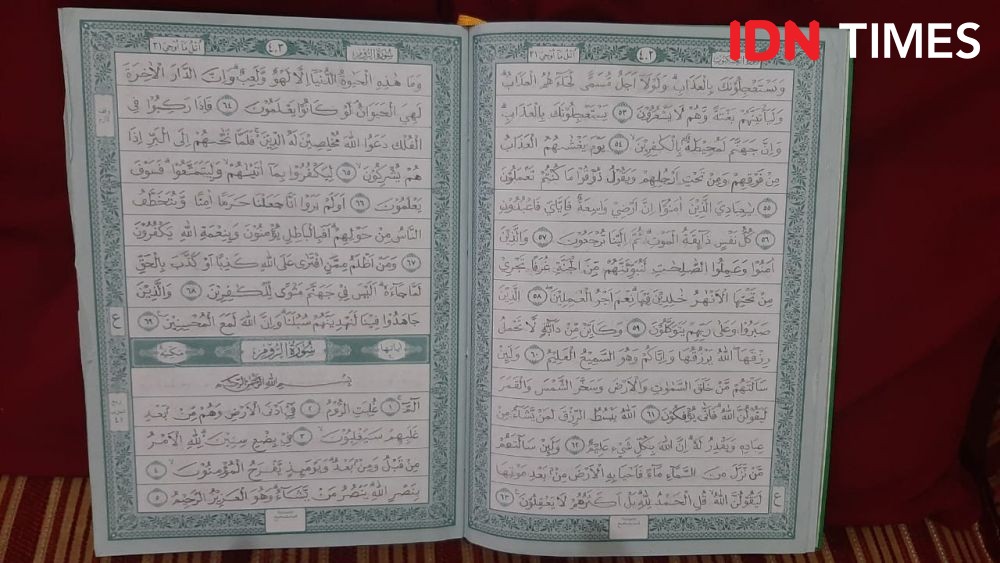 IDN TIMES
٤٠٢
اتل ما اوحي ٢١
وَيَسْتَعْجِلُوْنَكَ بِالْعَذَابِۗ وَلَوْلَآ اَجَلٌ مُّسَمًّى لَّجَاۤءَهُمُ الْعَذَابُۗ
وَلَيَأْتِيَنَّهُمْ بَغْتَةً وَّهُمْ لَا يَشْعُرُوْنَ ٥٣ يَسْتَعْجِلُوْنَكَ بِالْعَذَابِۗ
وَاِنَّ جَهَنَّمَ لَمُحِيْطَةٌ ۢ بِالْكٰفِرِيْنَۙ ٥٤ يَوْمَ يَغْشٰىهُمُ الْعَذَابُ
مِنْ فَوْقِهِمْ وَمِنْ تَحْتِ اَرْجُلِهِمْ وَيَقُوْلُ ذُوْقُوْا مَا كُنْتُمْ تَعْمَلُوْنَ
٥٥ يٰعِبَادِيَ الَّذِيْنَ اٰمَنُوْٓا اِنَّ اَرْضِيْ وَاسِعَةٌ فَاِيَّايَ فَاعْبُدُوْنِ
٥٦ كُلُّ نَفْسٍ ذَاۤىِٕقَةُ الْمَوْتِۗ ثُمَّ اِلَيْنَا تُرْجَعُوْنَ ٥٧ وَالَّذِيْنَ
اٰمَنُوْا وَعَمِلُوا الصّٰلِحٰتِ لَنُبَوِّئَنَّهُمْ مِّنَ الْجَنَّةِ غُرَفًا تَجْرِيْ
مِنْ تَحْتِهَا الْاَنْهٰرُ خٰلِدِيْنَ فِيْهَاۗ نِعْمَ اَجْرُ الْعٰمِلِيْنَۖ ٥٨ الَّذِيْنَ
صَبَرُوْا وَعَلٰى رَبِّهِمْ يَتَوَكَّلُوْنَ ٥٩ وَكَاَيِّنْ مِّنْ دَاۤبَّةٍ لَّا تَحْمِلُ
رِزْقَهَاۖ اَللّٰهُ يَرْزُقُهَا وَاِيَّاكُمْ وَهُوَ السَّمِيْعُ الْعَلِيْمُ ٦٠ وَلَىِٕنْ
سَاَلْتَهُمْ مَّنْ خَلَقَ السَّمٰوٰتِ وَالْاَرْضَ وَسَخَّرَ الشَّمْسَ وَالْقَمَرَ
لَيَقُوْلُنَّ اللّٰهُ ۗفَاَنّٰى يُؤْفَكُوْنَ ٦١ اَللّٰهُ يَبْسُطُ الرِّزْقَ لِمَنْ يَّشَاۤءُ مِنْ
عِبَادِهٖ وَيَقْدِرُ لَهٗ ۗاِنَّ اللّٰهَ بِكُلِّ شَيْءٍ عَلِيْمٌ ٦٢ وَلَىِٕنْ سَاَلْتَهُمْ
مَّنْ نَّزَّلَ مِنَ السَّمَاۤءِ مَاۤءً فَاَحْيَا بِهِ الْاَرْضَ مِنْۢ بَعْدِ مَوْتِهَا
لَيَقُوْلُنَّ اللّٰهُ ۗقُلِ الْحَمْدُ لِلّٰهِ ۗبَلْ اَكْثَرُهُمْ لَا يَعْقِلُوْنَ ٦٣
ع
سُوْرَةُ الرُّوْمِ
٤٠٣
اتل ما اوحي ٢١
وَمَا هٰذِهِ الْحَيٰوةُ الدُّنْيَآ اِلَّا لَهْوٌ وَّلَعِبٌۗ وَاِنَّ الدَّارَ الْاٰخِرَةَ
لَهِيَ الْحَيَوَانُۘ لَوْ كَانُوْا يَعْلَمُوْنَ ٦٤ فَاِذَا رَكِبُوْا فِى
الْفُلْكِ دَعَوُا اللّٰهَ مُخْلِصِيْنَ لَهُ الدِّيْنَ ەۚ فَلَمَّا نَجّٰىهُمْ اِلَى الْبَرِّ اِذَا
هُمْ يُشْرِكُوْنَۙ ٦٥ لِيَكْفُرُوْا بِمَآ اٰتَيْنٰهُمْۙ وَلِيَتَمَتَّعُوْاۗ فَسَوْفَ
يَعْلَمُوْنَ ٦٦ اَوَلَمْ يَرَوْا اَنَّا جَعَلْنَا حَرَمًا اٰمِنًا وَّيُتَخَطَّفُ
النَّاسُ مِنْ حَوْلِهِمْۗ اَفَبِالْبَاطِلِ يُؤْمِنُوْنَ وَبِنِعْمَةِ اللّٰهِ يَكْفُرُوْنَ
٦٧ وَمَنْ اَظْلَمُ مِمَّنِ افْتَرٰى عَلَى اللّٰهِ كَذِبًا اَوْ كَذَّبَ بِالْحَقِّ
لَمَّا جَاۤءَهٗ ۗ اَلَيْسَ فِيْ جَهَنَّمَ مَثْوًى لِّلْكٰفِرِيْنَ ٦٨ وَالَّذِيْنَ
جَاهَدُوْا فِيْنَا لَنَهْدِيَنَّهُمْ سُبُلَنَاۗ وَاِنَّ اللّٰهَ لَمَعَ الْمُحْسِنِيْنَ ٦٩
ع
سُوْرَةُ الرُّوْمِ
بِسْمِ اللّٰهِ الرَّحْمٰنِ الرَّحِيْمِ
الۤمّۤ ۚ ١ غُلِبَتِ الرُّوْمُۙ ٢ فِيْٓ اَدْنَى الْاَرْضِ وَهُمْ مِّنْۢ بَعْدِ
غَلَبِهِمْ سَيَغْلِبُوْنَۙ ٣ فِيْ بِضْعِ سِنِيْنَ ەۗ لِلّٰهِ الْاَمْرُ
مِنْ قَبْلُ وَمِنْۢ بَعْدُ ۗوَيَوْمَىِٕذٍ يَّفْرَحُ الْمُؤْمِنُوْنَۙ ٤
بِنَصْرِ اللّٰهِ ۗيَنْصُرُ مَنْ يَّشَاۤءُۗ وَهُوَ الْعَزِيْزُ الرَّحِيْمُۙ ٥